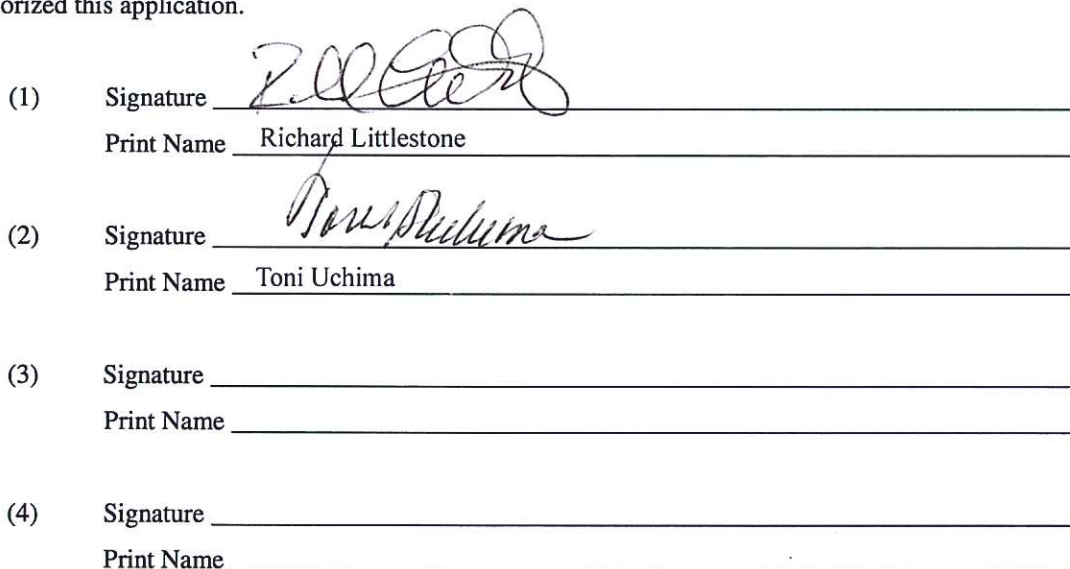 orized this application.
(1) Signature
Print Name Richard Littlestone
(2) Signature
Print Name Toni Uchima
(3) Signature
Print Name
(4) Signature
Print Name